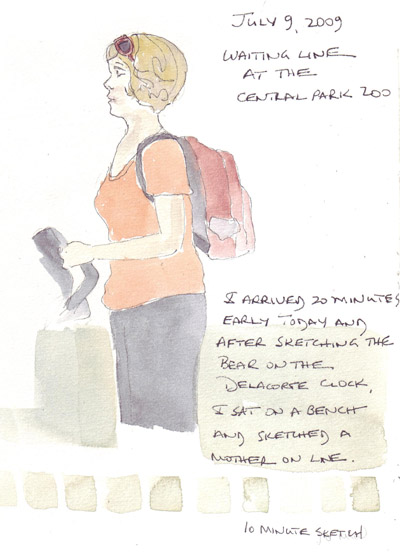 JULY 9, 2009
WAITING LINE
AT THE
CENTRAL PARK ZOO
I ARRIVED 20 MINUTES
EARLY TODAY AND
AFTER SKETCHING THE
BEAR ON THE
DELACORTE CLOCK,
I SAT ON A BENCH
AND SKETCHED A
MOTHER ON LINE.
10 MINUTE SKETCH